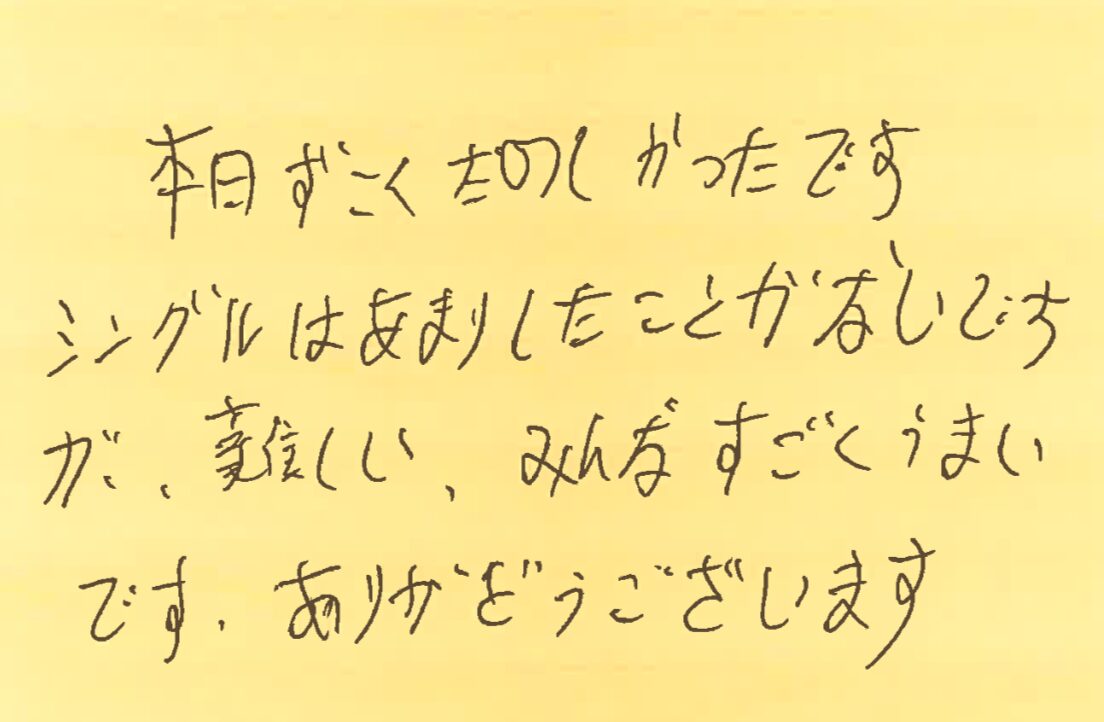 本日ずこくたのしかったです
シングルはあまりしたことがないです
が、難しい、みんなすごくうまい
です.ありがどうございます